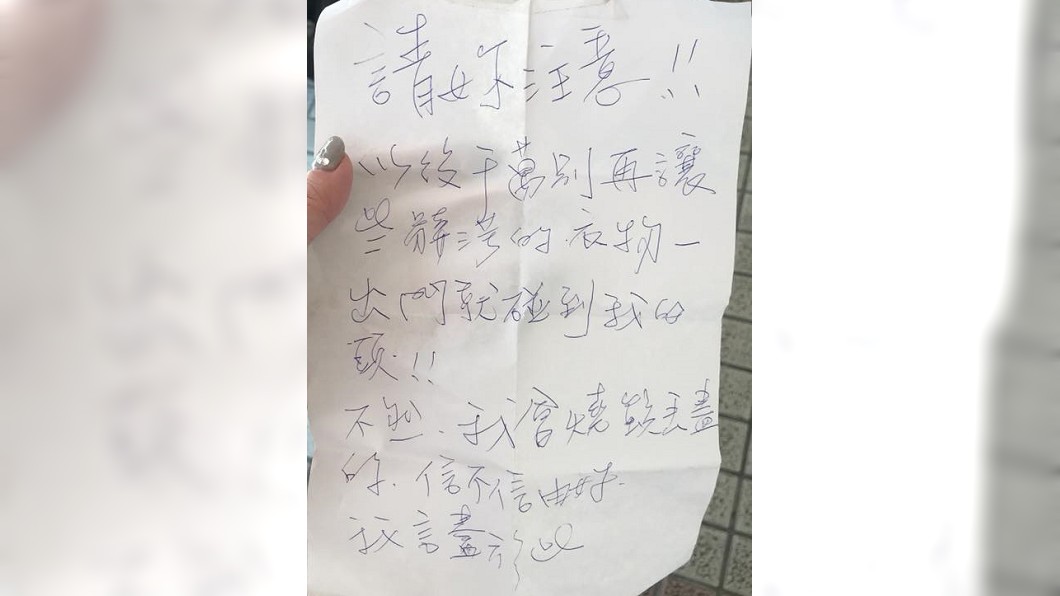 請妳注意!!
以後千萬別再讓
些髒污的衣物一
出門就碰到我的
頭!!
不然.我會燒毀丟盡
的.信不信由妳.
我言盡於此